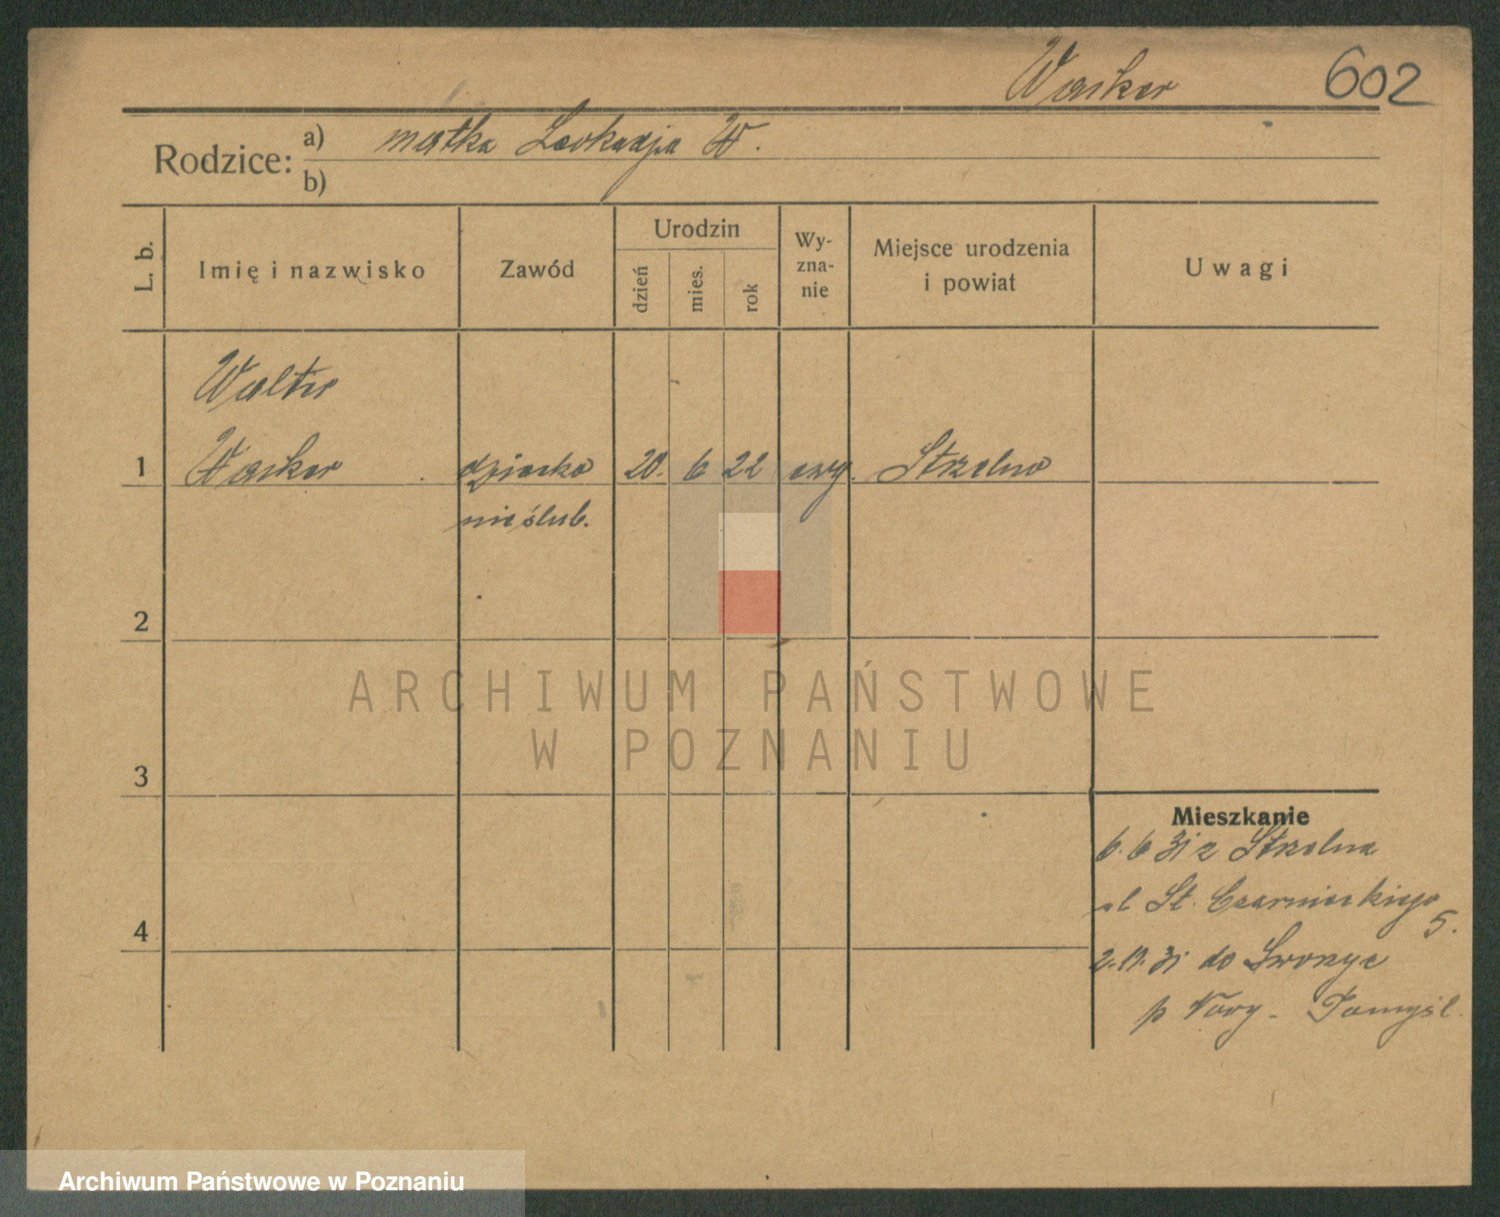 Wasker 602
Rodzice: a) matka Leokadja W.
b)
L. b. Imię i nazwisko Zawód Urodzin dzień mies. rok Wy-zna-nie Miejsce urodzenia i powiat Uwagi
Walter
1 Wasker dziecko 20. 6 22 ewg. Strzelno
nieślub.
2
ARCHIWUM PAŃSTWOWE
W POZNANIU
3
Mieszkanie
6. 6 31 z Strzelna
ul St. Czarnieckiego
5.
4
2. 31 do
p Nowy - Tomyśl.
Archiwum Państwowe w Poznaniu